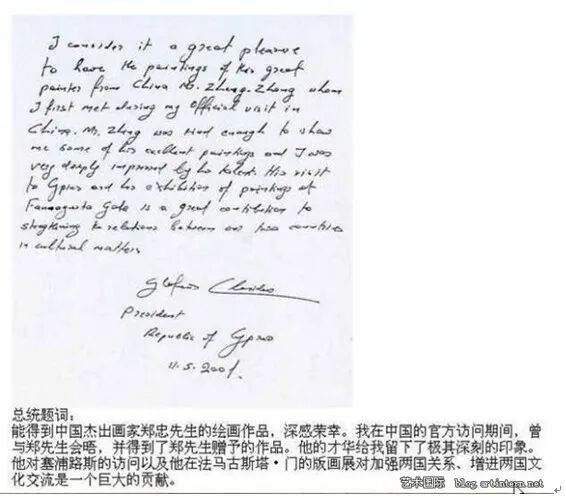 I consider it a great pleasure
to have the paintings of this great
painter from China Mr. Zheng-Zhong whom
I first met during my official visit in
China. Mr. Zheng was kind enough to show
me some of his excellent paintings and I was
very deeply impressed by his talent. His visit
to Cyprus and his exhibition of paintings at
Famagusta Gate is a great contribution to
strengthening the relations between our two countries
in cultural matters
President
Republic of Cyprus
11.5.2001.
总统题词：
能得到中国杰出画家郑忠先生的绘画作品，深感荣幸。我在中国的官方访问期间，曾
与郑先生会晤，并得到了郑先生赠予的作品。他的才华给我留下了极其深刻的印象。
他对塞浦路斯的访问以及他在法马古斯塔·门的版画展对加强两国关系、增进两国文
化交流是一个巨大的贡献。
艺术国际 blog.artintern.net